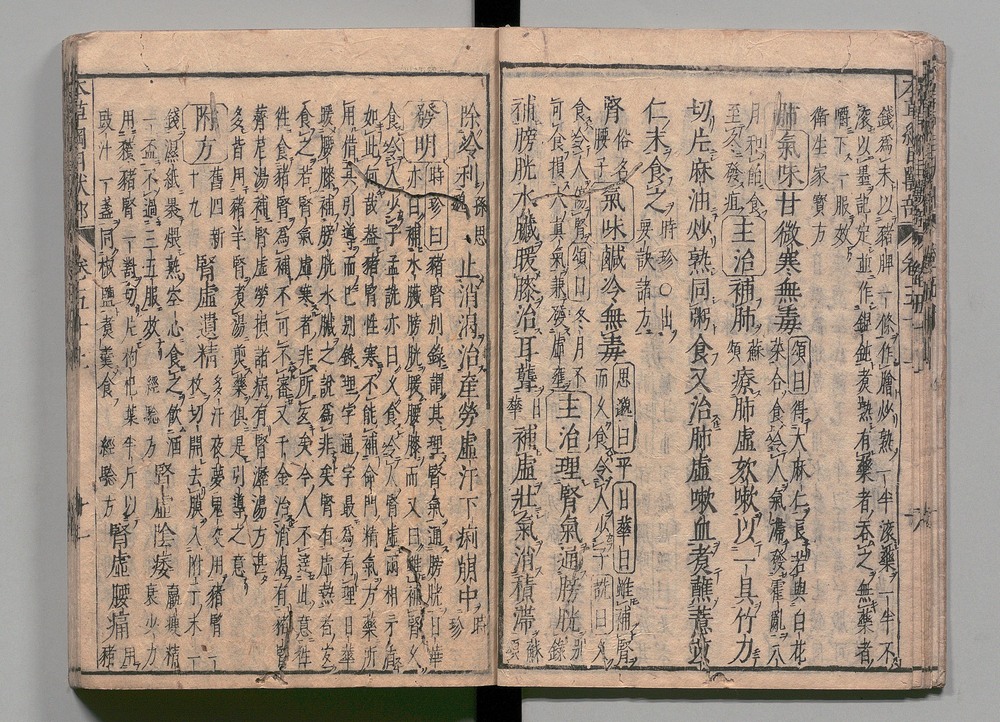 錢爲末以豬脾一條作膾炒熟一半滾藥一半不
滾以墨記定並作餛飩煮熟有藥者吞之無藥者
嚼下一服效
衛生家寶方
肺氣味甘微寒無毒頌曰得大麻仁良若與白花
菜合食令人氣滯發霍亂八
月和飴食
至冬發疽主治補肺頌療肺虛欬嗽以一具竹刀
切片麻油炒熟同粥食又治肺虛嗽血煮蘸薏苡
仁末食之時珍○出
要訣諸方
腎俗名
腰子氣味鹹冷無毒思邈曰平日華曰雖補腎
而久食令人少子詵曰久
食令人傷腎頌曰冬月不
可食損人真氣兼發虛壅主治理腎氣通膀胱別
錄
補膀胱水臟暖膝治耳聾日
華補虛壯氣消積滯蘇
頌
除冷利孫思
邈止消渴治產勞虛汗下痢崩中時
珍
發明時珍曰豬腎別錄謂其理腎氣通膀胱日華
亦曰補水臟膀胱暖腰膝而又曰雖補腎久
食令人少子孟詵亦曰久食令人腎虛兩相矛盾
如此何哉蓋豬腎性寒不能補命門精氣方藥所
用借其引導而已別錄理字通字最爲有理日華
暖腰膝補膀胱水臟之說爲非矣今人腎有虛熱者宜
食之若腎氣虛寒者非所宜矣今人不達此意往
往食豬腎爲補不可不審又千金治消渴有豬腎
薺苨湯補腎虛勞損諸病有腎瀝湯方甚
多皆用豬羊腎煮湯煎藥俱是引導之意
附方舊四新
十九腎虛遺精多汗夜夢鬼交用豬腎一
枚切開去膜入附子末一
錢濕紙裹煨熟空心食之飲酒
一盃不過三五服效經驗方腎虛陰痿羸瘦精
衰少力
用豬腎一對切片枸杞葉半斤以
豉汁一盞同椒鹽煮羹食經驗方腎虛腰痛用
豬